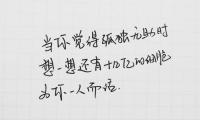 当你觉得孤独无助时
想一想还有十几亿的细胞
为你一人而活